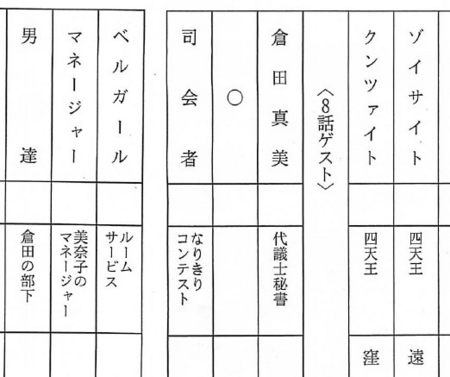 ゾイサイト
四天王
遠
クンツァイト
四天王
窪
〈8話ゲスト〉
倉田真美
代議士秘書
○
司会者
なりきり
コンテスト
ベルガール
ルーム
サービス
マネージャー
美奈子の
マネージャー
男達
倉田の部下